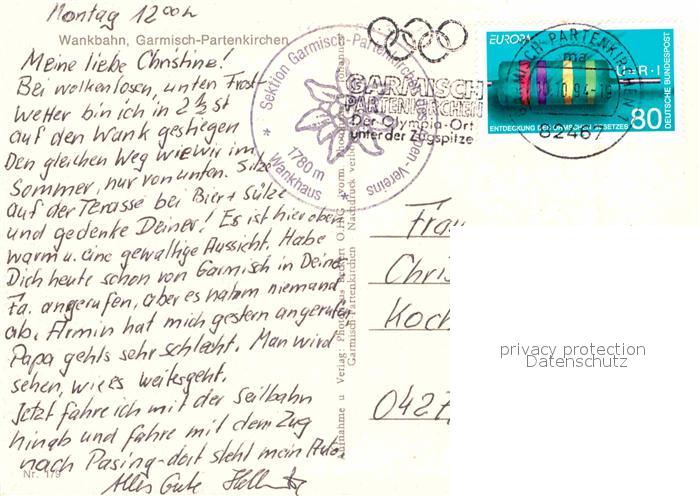 Montag 12⁰⁰h
Wankbahn, Garmisch-Partenkirchen
Meine liebe Christine!
Bei wolkenlosen, unten Frost-
wetter bin ich in 2½ St
auf den Wank gestiegen
Den gleichen Weg wie wir im
Sommer, nur von unten. Sitze
auf der Terasse bei Bier + Sülze
und gedenke Deiner! Es ist hier oben
warm u. eine gewaltige Aussicht. Habe
Dich heute schon von Garmisch in Deine
Fa. angerufen, aber es nahm niemand
ab. Armin hat mich gestern angerufen
Papa gehts sehr schlecht. Man wird
sehen, wie es weitergeht.
Jetzt fahre ich mit der Seilbahn
hinab und fahre mit dem Zug
nach Pasing - dort steht mein Auto.
Alles Gute
Nr. 179
Sektion Garmisch-Partenkirchen
Alpen-Vereins
1780 m
Wankhaus
GARMISCH
PARTENKIRCHEN
Der Olympia-Ort
unter der Zugspitze
GARMISCH-PARTENKIRCHEN 1
ma
.10.94-19
82467
EUROPA
U=R·I
DEUTSCHE BUNDESPOST
ENTDECKUNG DES OHMSCHEN GESETZES 80
Aufnahme u Verlag: Photohaus Beckert O.H.G. vorm.
Garmisch-Partenkirchen Nachdruck verboten
Frau
Chri
Koch
042
privacy protection
Datenschutz